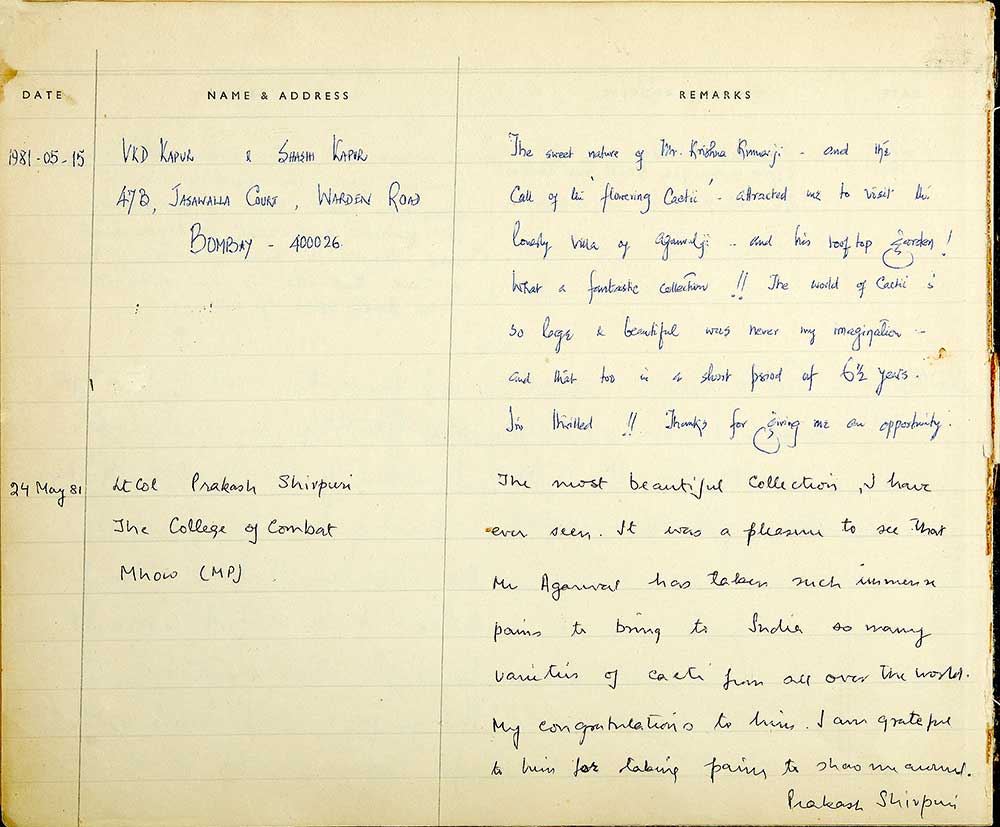 DATE NAME & ADDRESS REMARKS
1981-05-15 VKD KAPUR & SHASHI KAPUR
47B, JASAWALLA COURT, WARDEN ROAD
BOMBAY - 400026
The sweet nature of Mr. Krishna Kumarji - and the
Call of the 'flowering Cactii' - attracted me to visit the
lovely villa of Agarwalji - and his roof top garden!
What a fantastic collection !! The world of Cactii is
so large & beautiful was never my imagination -
and that too in a short period of 6½ years.
I'm thrilled !! Thanks for giving me an opportunity.
24 May 81 Lt Col Prakash Shivpuri
The College of Combat
Mhow (MP)
The most beautiful collection, I have
ever seen. It was a pleasure to see that
Mr Agarwal has taken such immense
pains to bring to India so many
varieties of cacti from all over the world.
My congratulations to him. I am grateful
to him for taking pains to show me around.
Prakash Shivpuri